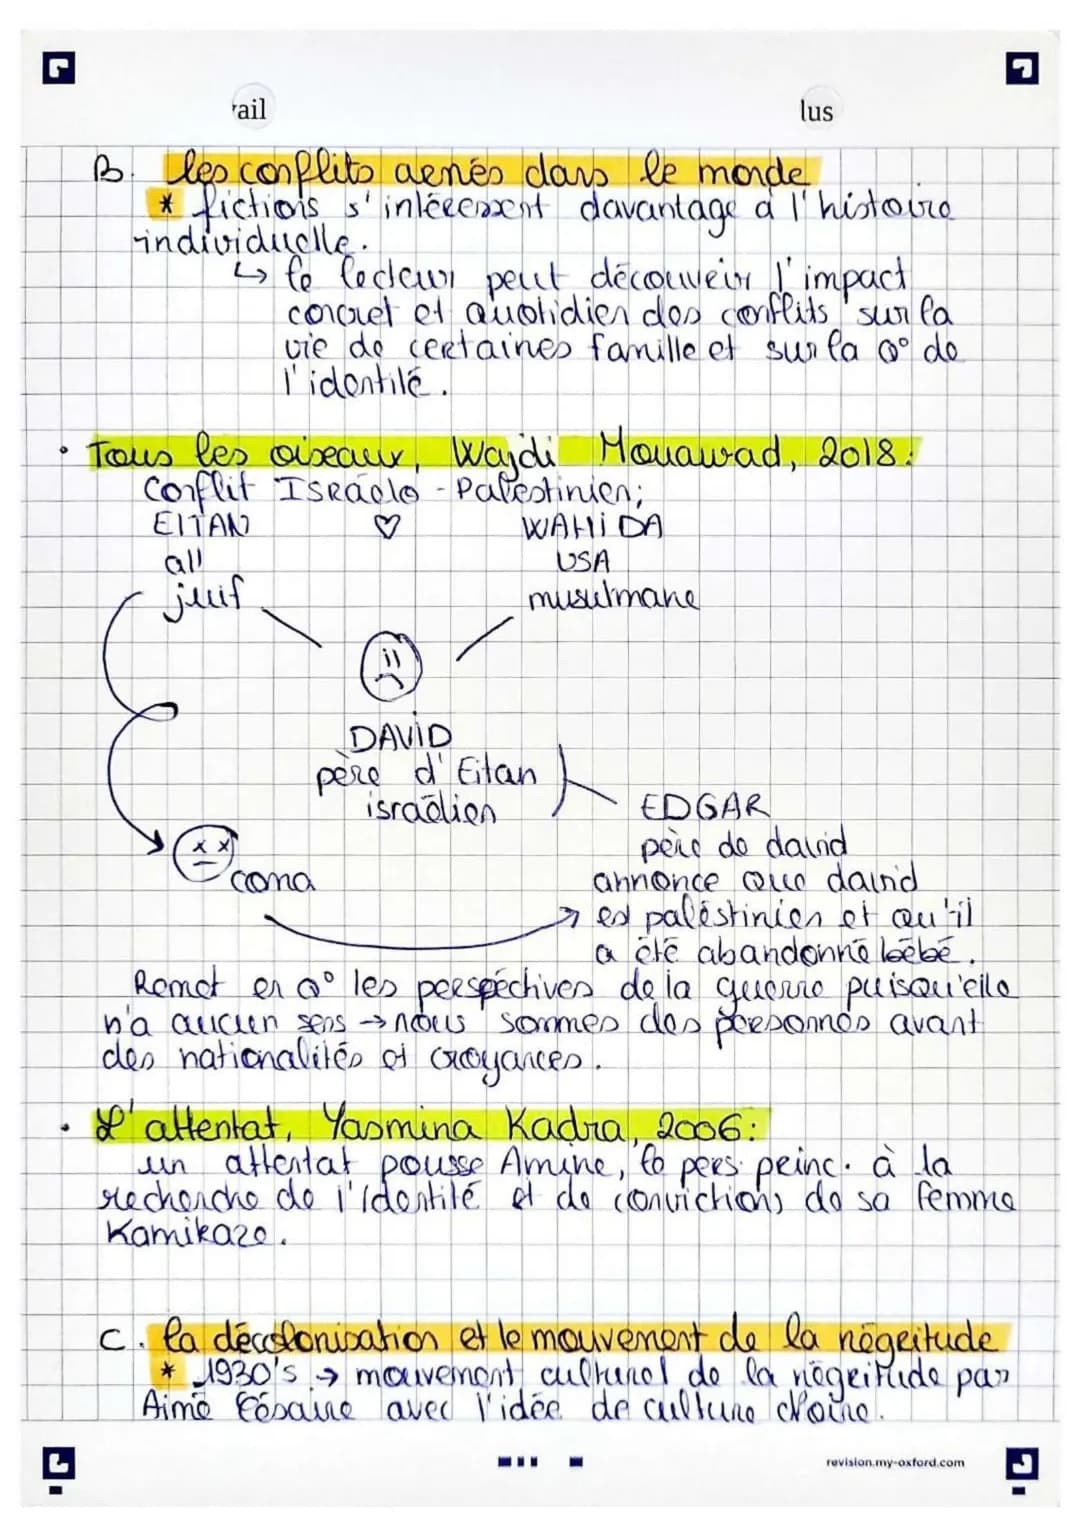 ail
lus
B. les conflits armés dans le monde
* fictions s'intéressent davantage à l'histoire
individuelle.
↳ le lecteur peut découvrir l'impact
concret et quotidien des conflits sur la
vie de certaines famille et sur la Q° de
l'identité.
• Tous les oiseaux, Wajdi Mouawad, 2018:
Conflit Israélo-Palestinien;
EITAN ♡ WAHIDA
all USA
juif musulmane
DAVID
père d'Eitan
israélien
EDGAR
père de david
coma annonce que david
→ est paléstinien et qu'il
a été abandonné bébé.
Remet en Q° les perspéctives de la guerre puisqu'elle
n'a aucun sens → nous sommes des personnes avant
des nationalités et croyances.
• L'attentat, Yasmina Kadra, 2006:
un attentat pousse Amine, le pers. princ. à la
recherche de l'identité et de convictions de sa femme
Kamikaze.
C. la décolonisation et le mouvement de la négritude
* 1930's → mouvement culturel de la négritude par
Aimé Césaire avec l'idée de culture noire.
revision.my-oxford.com